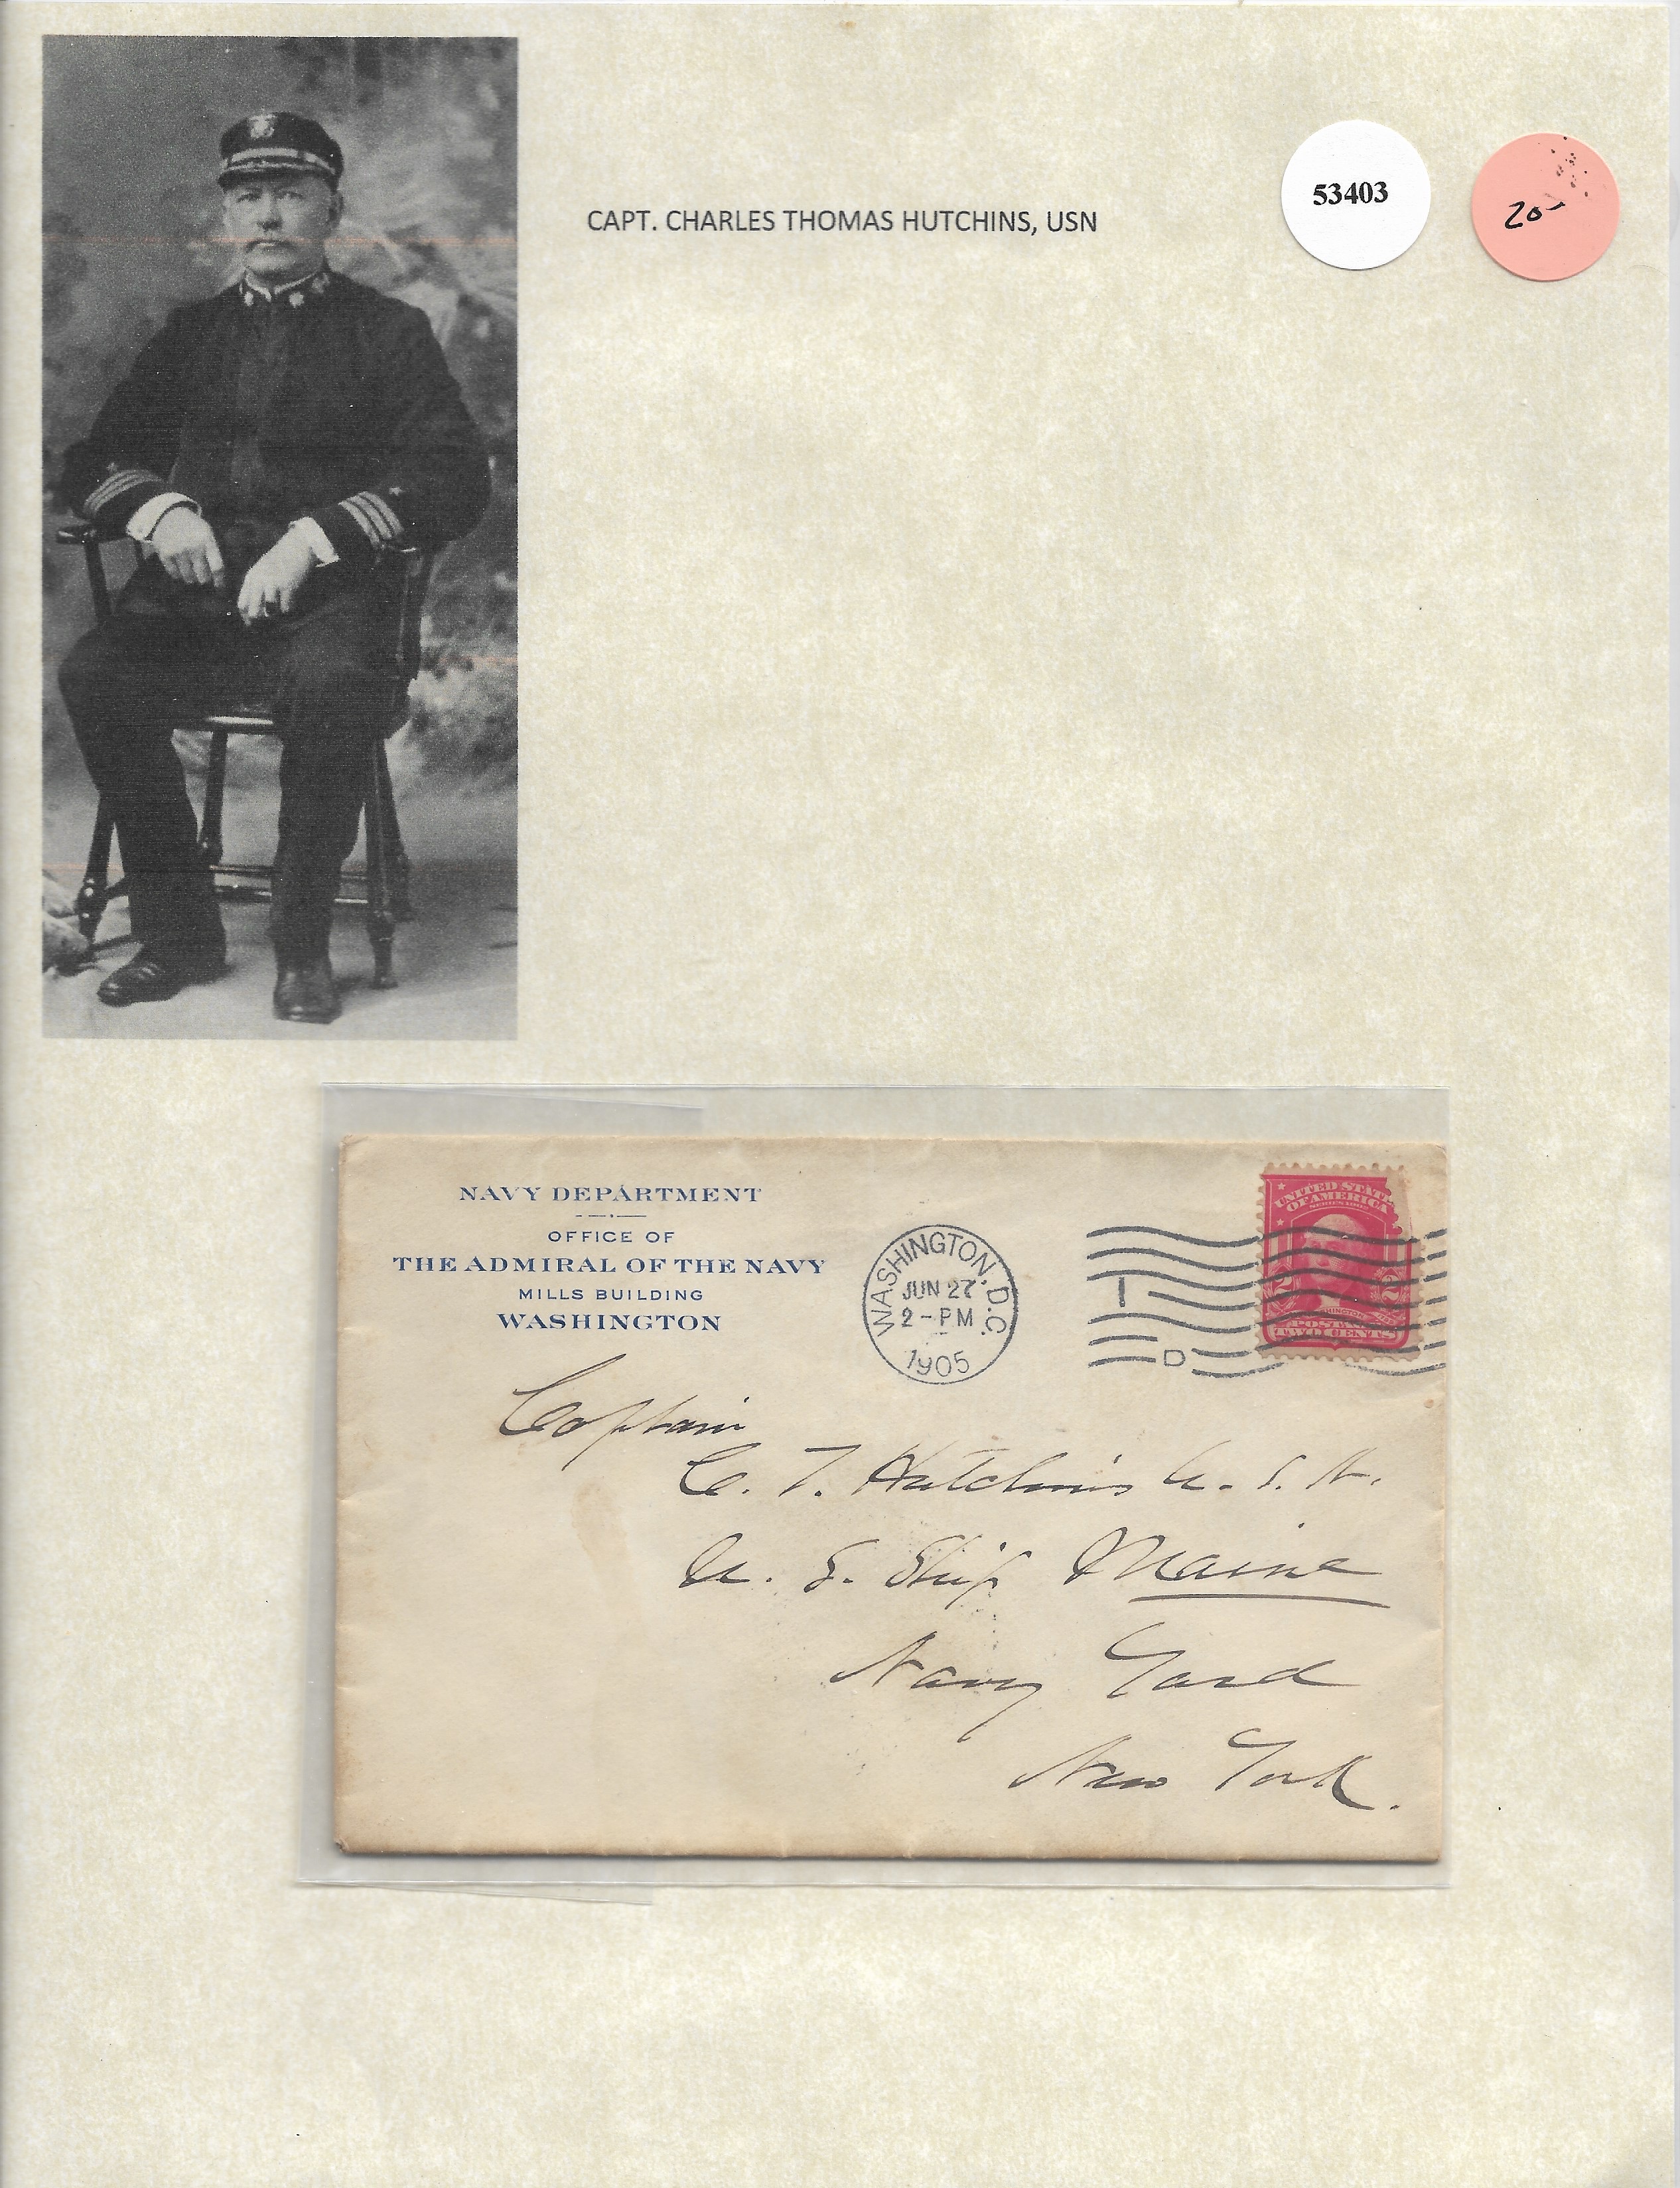 CAPT. CHARLES THOMAS HUTCHINS, USN
53403
20-
NAVY DEPARTMENT
OFFICE OF
THE ADMIRAL OF THE NAVY
MILLS BUILDING
WASHINGTON
WASHINGTON, D.C.
JUN 27
2-PM
1905
1
D
UNITED STATES
OF AMERICA
SERIES 1902
2
POSTAGE
TWO CENTS
Captain
C. T. Hutchins U. S. N.
U. S. Ship Maine
Navy Yard
New York.